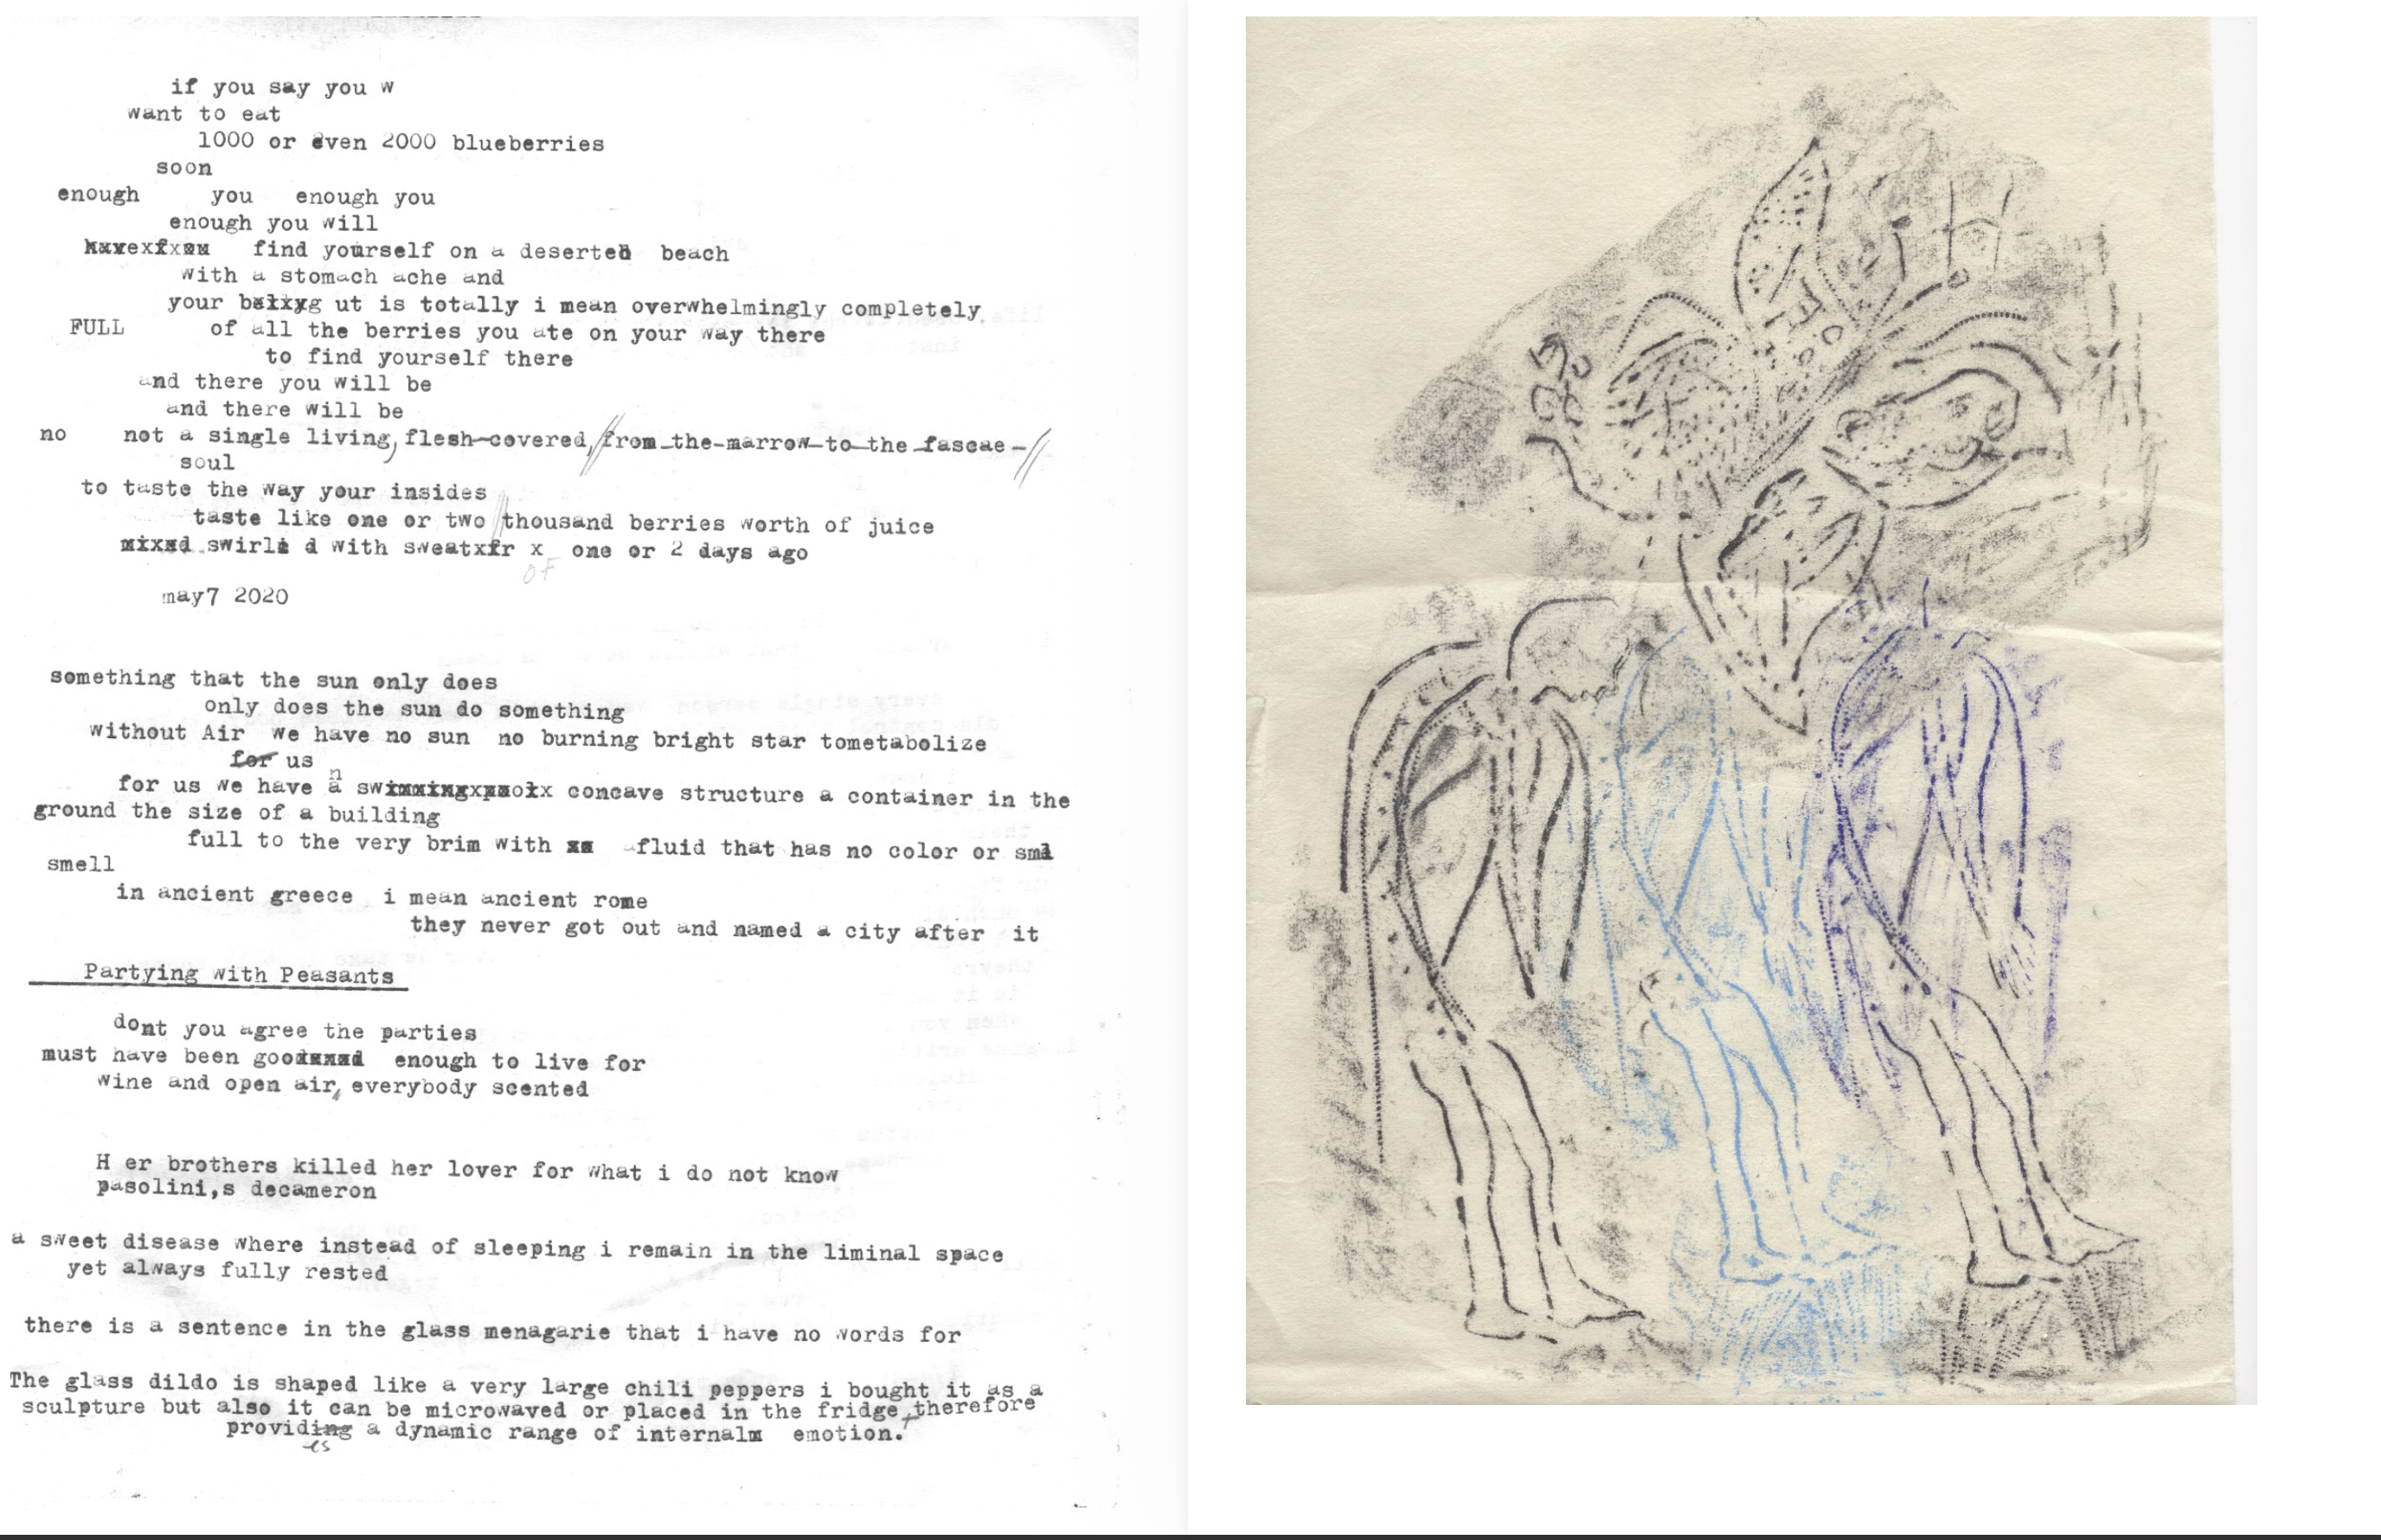 if you say you w
want to eat
1000 or even 2000 blueberries
soon
enough you enough you
enough you will
find yourself on a deserted beach
with a stomach ache and
your bellyg ut is totally i mean overwhelmingly completely
FULL of all the berries you ate on your way there
to find yourself there
and there you will be
and there will be
no not a single living, flesh-covered, from the marrow to the fascae -
soul
to taste the way your insides
taste like one or two thousand berries worth of juice
mixed swirli d with sweatxfr x one or 2 days ago
OF
may7 2020
something that the sun only does
only does the sun do something
without Air we have no sun no burning bright star tometabolize
for us
n
for us we have a swimmingxpoolx concave structure a container in the
ground the size of a building
full to the very brim with a fluid that has no color or sml
smell
in ancient greece i mean ancient rome
they never got out and named a city after it
Partying with Peasants
dont you agree the parties
must have been good enough to live for
wine and open air, everybody scented
H er brothers killed her lover for what i do not know
pasolini,s decameron
a sweet disease where instead of sleeping i remain in the liminal space
yet always fully rested
there is a sentence in the glass menagerie that i have no words for
The glass dildo is shaped like a very large chili peppers i bought it as a
sculpture but also it can be microwaved or placed in the fridge, therefore
providing a dynamic range of internal emotion.
es